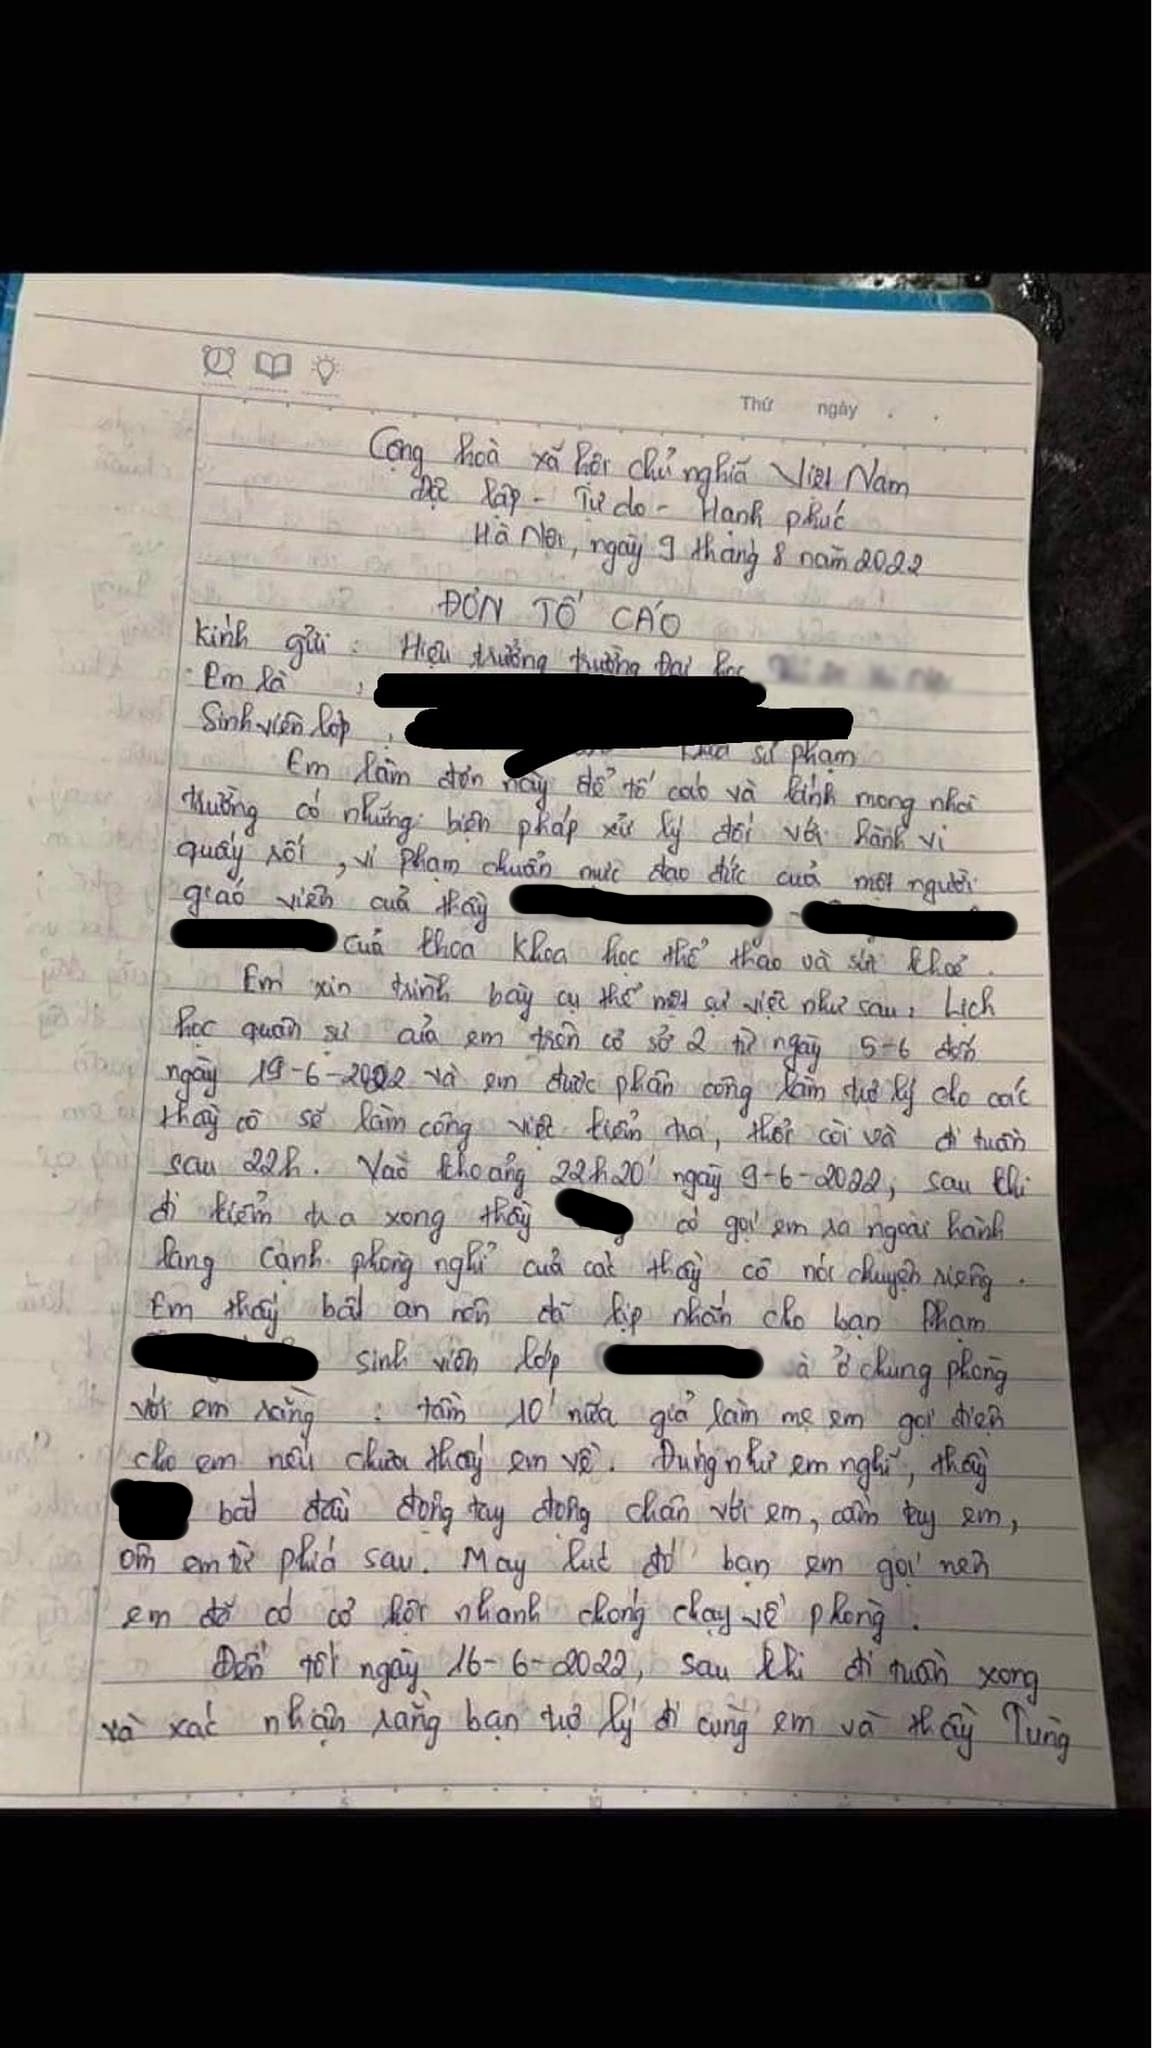 Thứ ngày . .
Cộng hoà xã hội chủ nghĩa Việt Nam
Độc lập - Tự do - Hạnh phúc
Hà Nội, ngày 9 tháng 8 năm 2022
ĐƠN TỐ CÁO
Kính gửi : Hiệu trưởng trường Đại học
Em là :
Sinh viên lớp :
khoa sư phạm
Em làm đơn này để tố cáo và kính mong nhà
trường có những biện pháp xử lý đối với hành vi
quấy rối , vi phạm chuẩn mực đạo đức của một người
giáo viên của thầy -
của khoa Khoa học thể thao và sức khoẻ .
Em xin trình bày cụ thể một sự việc như sau : Lịch
học quân sự của em trên cơ sở 2 từ ngày 5-6 đến
ngày 19-6-2022 và em được phân công làm trợ lý cho các
thầy cô sẽ làm công việc kiểm tra, thổi còi và đi tuần
sau 22h. Vào khoảng 22h20' ngày 9-6-2022, sau khi
đi kiểm tra xong thầy có gọi em ra ngoài hành
lang cạnh phòng nghỉ của các thầy cô nói chuyện riêng .
Em thấy bất an nên đã kịp nhắn cho bạn Phạm
sinh viên lớp và ở chung phòng
với em rằng : tầm 10' nữa giả làm mẹ em gọi điện
cho em nếu chưa thấy em về . Đúng như em nghĩ, thầy
bắt đầu động tay động chân với em, cầm tay em,
ôm em từ phía sau. May lúc đó bạn em gọi nên
em đã có cơ hội nhanh chóng chạy về phòng .
Đến tối ngày 16-6-2022, sau khi đi tuần xong
và xác nhận rằng bạn trợ lý đi cùng em và thầy Tùng
5 10